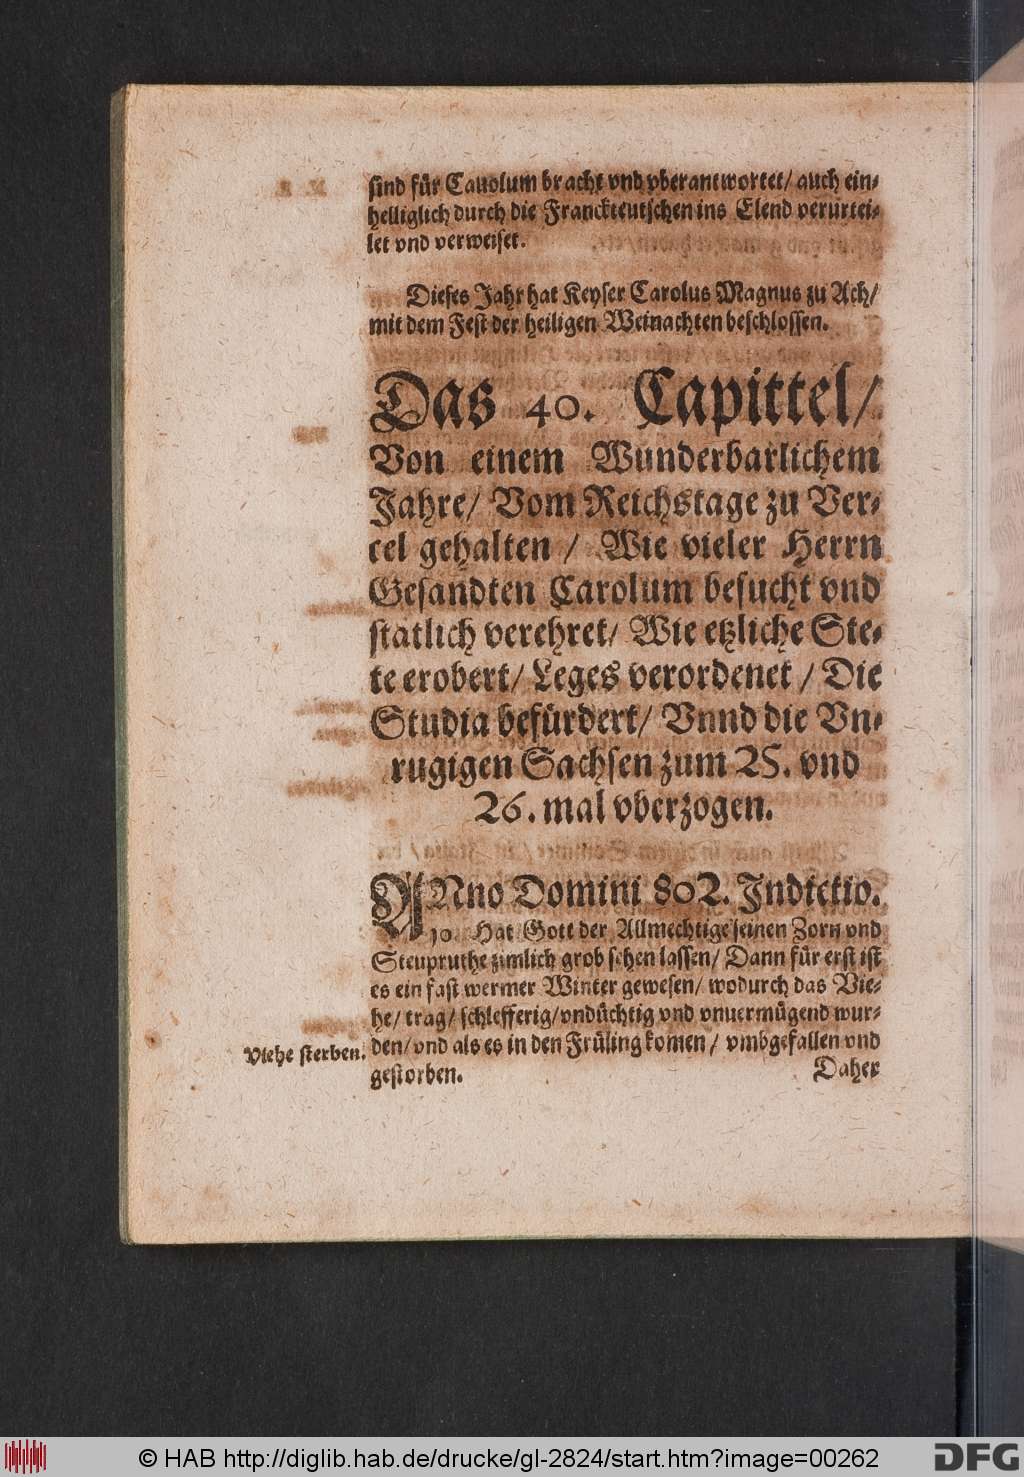 sind für Cauolum bracht vnd vberantwortet/ auch ein-
helliglich durch die Franckteutschen ins Elend verurtei-
let vnd verweiset.
Dieses Jahr hat Keyser Carolus Magnus zu Ach/
mit dem Fest der heiligen Weinachten beschlossen.
Das 40. Capittel/
Von einem Wunderbarlichem
Jahre/ Vom Reichstage zu Ver-
cel gehalten / Wie vieler Herrn
Gesandten Carolum besucht vnd
statlich verehret/ Wie etzliche Ste-
te erobert/ Leges verordenet / Die
Studia befürdert/ Vnnd die Vn-
rugigen Sachsen zum 25. vnd
26. mal vberzogen.
ANno Domini 802. Indictio.
10. Hat Gott der Allmechtige seinen Zorn vnd
Steupruthe zimlich grob sehen lassen/ Dann für erst ist
es ein fast wermer Winter gewesen/ wodurch das Vie-
he/ trag/ schlefferig/ vndüchtig vnd vnuermügend wur-
den/ vnd als es in den Früling komen / vmbgefallen vnd
Viehe sterben.
gestorben.
Daher
© HAB http://diglib.hab.de/drucke/gl-2824/start.htm?image=00262
DFG